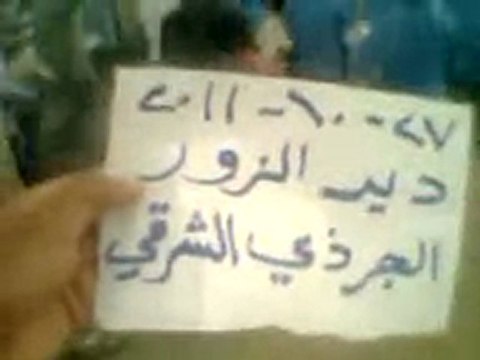 ٢٠١١-١٠-٢٧
دير الزور
الجرذي الشرقي